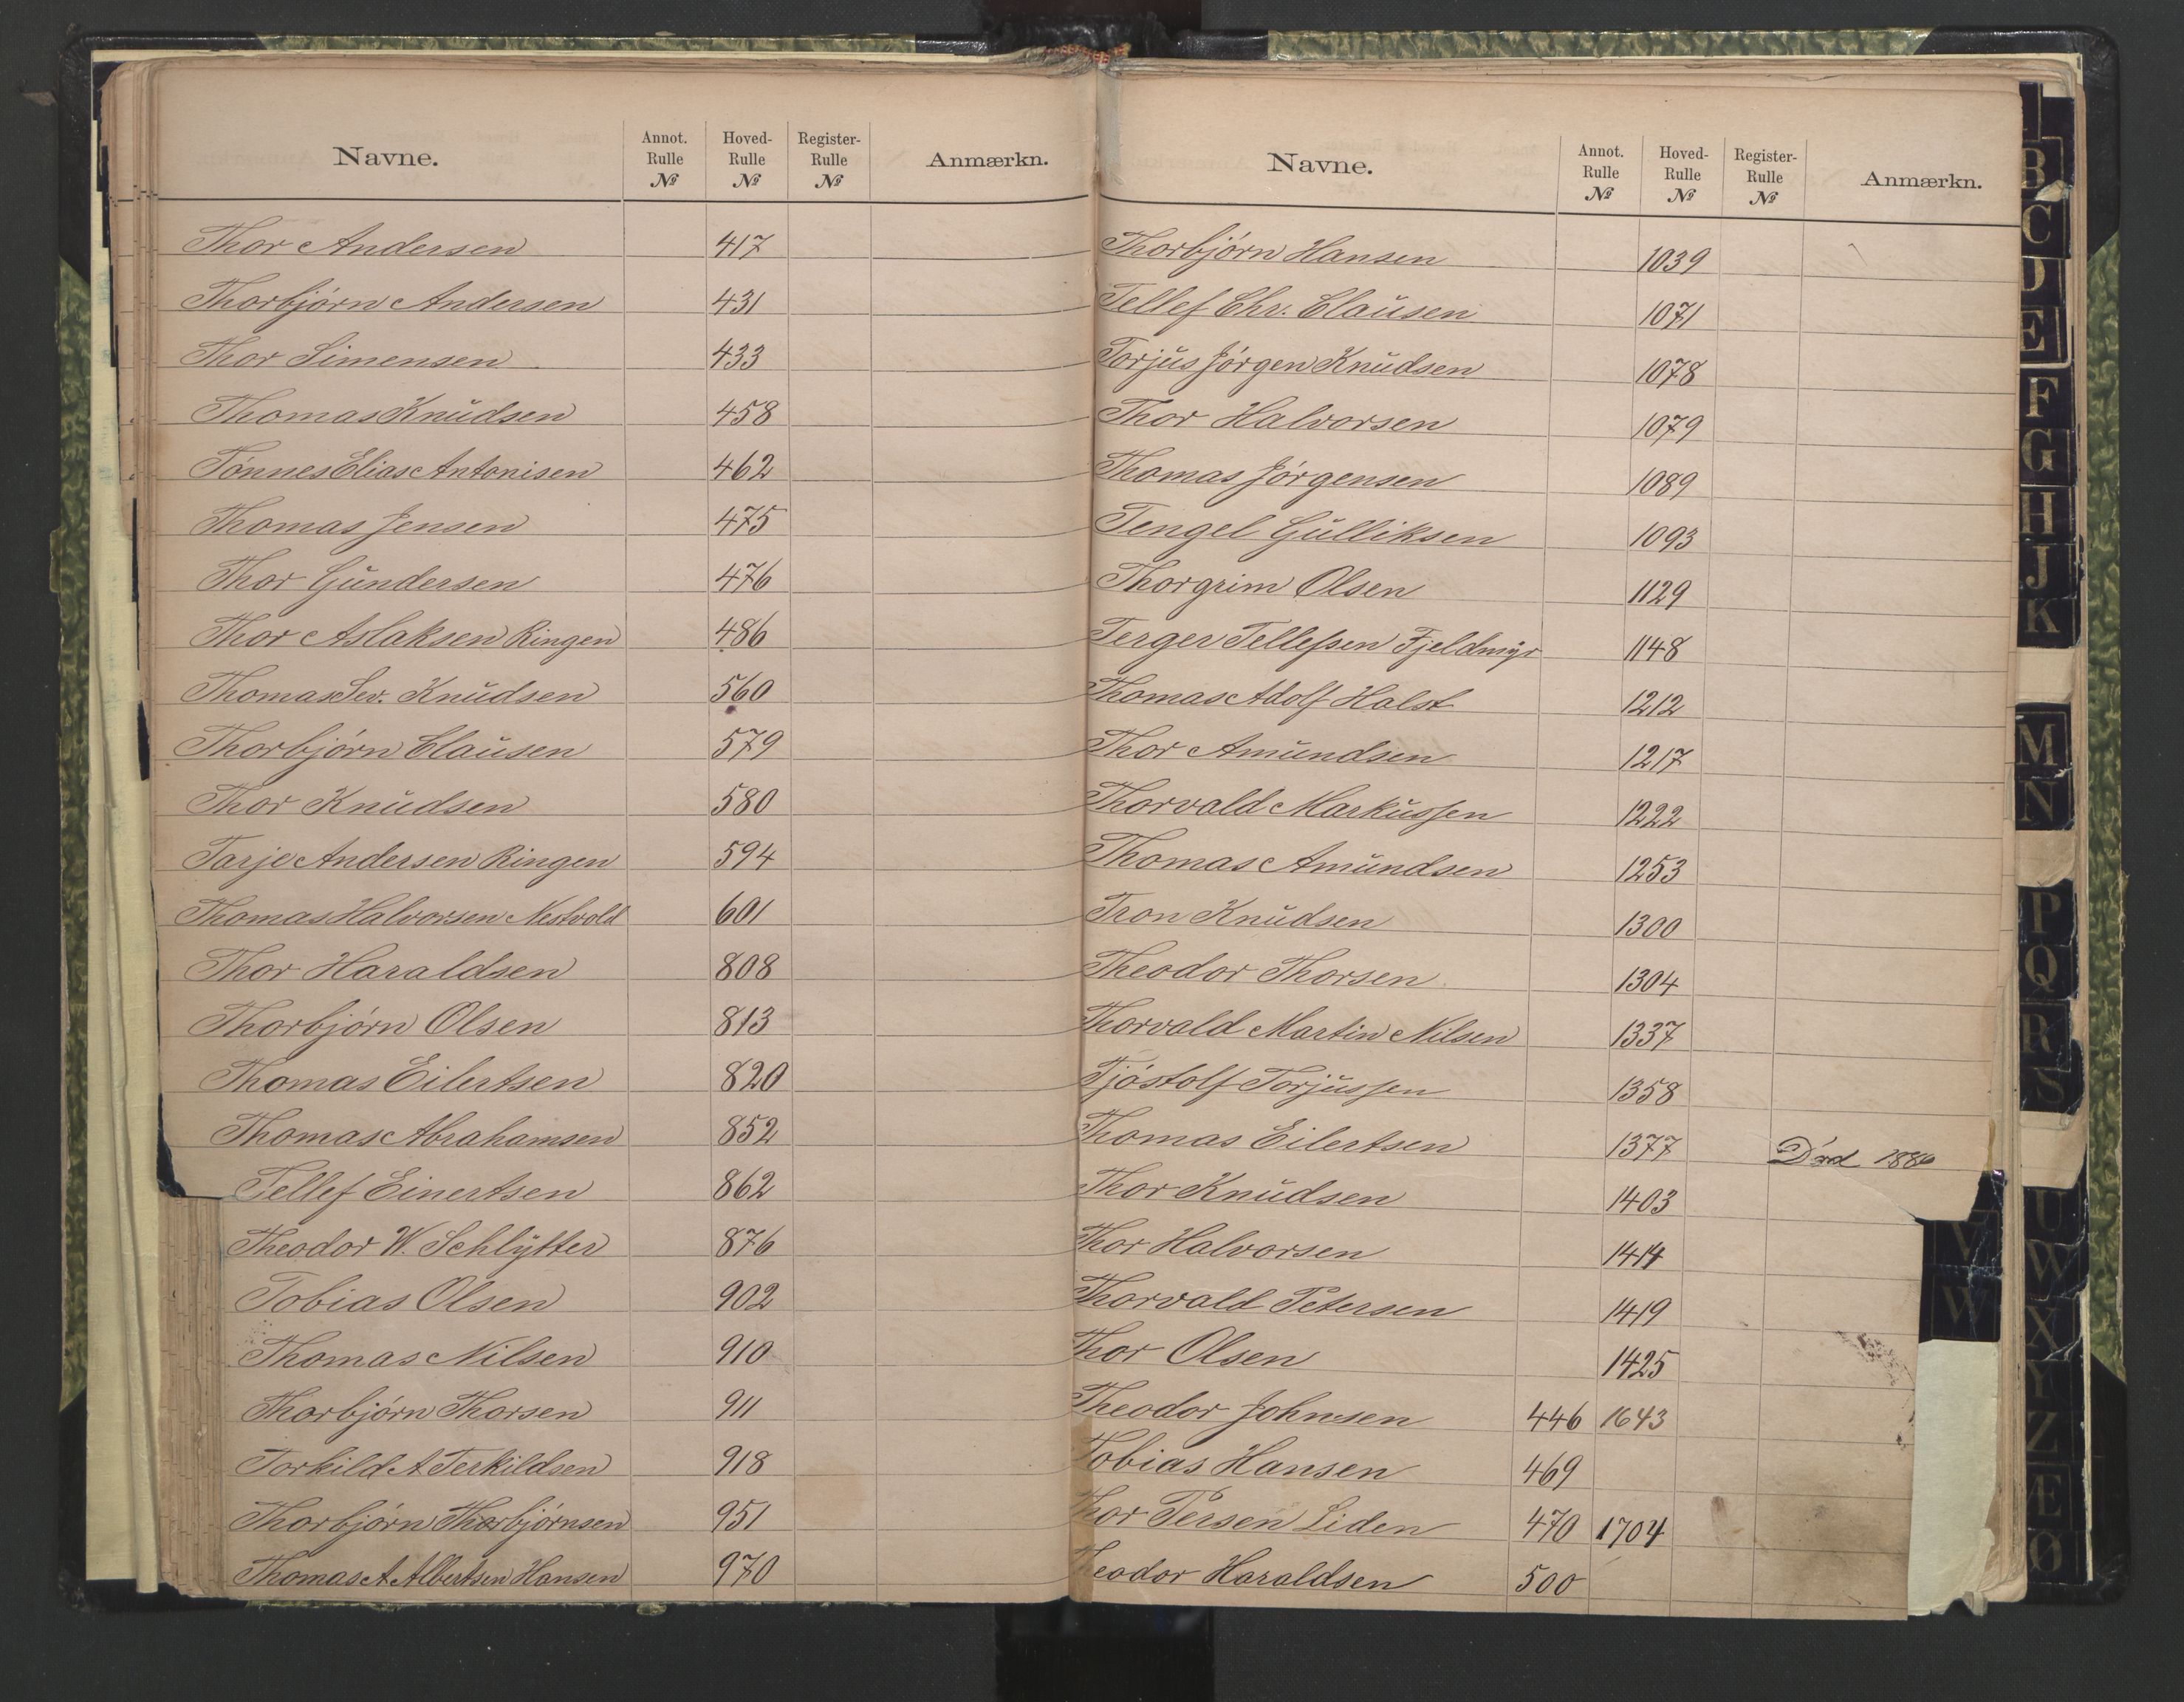 Navne. Annot. Rulle № Hoved-Rulle № Register-Rulle № Anmærkn.
Thor Andersen 417
Thorbjörn Andersen 431
Thor Simensen 433
Thomas Knudsen 458
Tönnes Elias Antonisen 462
Thomas Jensen 475
Thor Gundersen 476
Thor Aslaksen Ringen 486
Thomas Sev. Knudsen 560
Thorbjörn Clausen 579
Thor Knudsen 580
Tarje Andersen Ringen 594
Thomas Halvorsen Nestvold 601
Thor Haraldsen 808
Thorbjörn Olsen 813
Thomas Eilertsen 820
Thomas Abrahamsen 852
Tellef Einertsen 862
Theodor W. Schlytter 876
Tobias Olsen 902
Thomas Nilsen 910
Thorbjörn Thorsen 911
Torkild A Terkildsen 918
Thorbjörn Thorbjörnsen 951
Thomas A Albertsen Hansen 970
Navne. Annot. Rulle № Hoved-Rulle № Register-Rulle № Anmærkn.
Thorbjörn Hansen 1039
Tellef Chr. Clausen 1071
Torjus Jörgen Knudsen 1078
Thor Halvorsen 1079
Thomas Jörgensen 1089
Tengel Gulliksen 1093
Thorgrim Olsen 1129
Terger Tellefsen Fjeldmyr 1148
Thomas Adolf Holst 1212
Thor Amundsen 1217
Thorvald Markussen 1222
Thomas Amundsen 1253
Tron Knudsen 1300
Theodor Thorsen 1304
Thorvald Martin Nilsen 1337
Tjöstolf Torjussen 1358
Thomas Eilertsen 1377 Död 1886
Thor Knudsen 1403
Thor Halvorsen 1414
Thorvald Petersen 1419
Thor Olsen 1425
Theodor Johnsen 446 1643
Tobias Hansen 469
Thor Persen Liden 470 1704
Theodor Haraldsen 500
B
C
D
E
F
G
H
J
K
M
N
P
Q
R
S
U
V
W
W
X
Y
Z
Æ
Ø